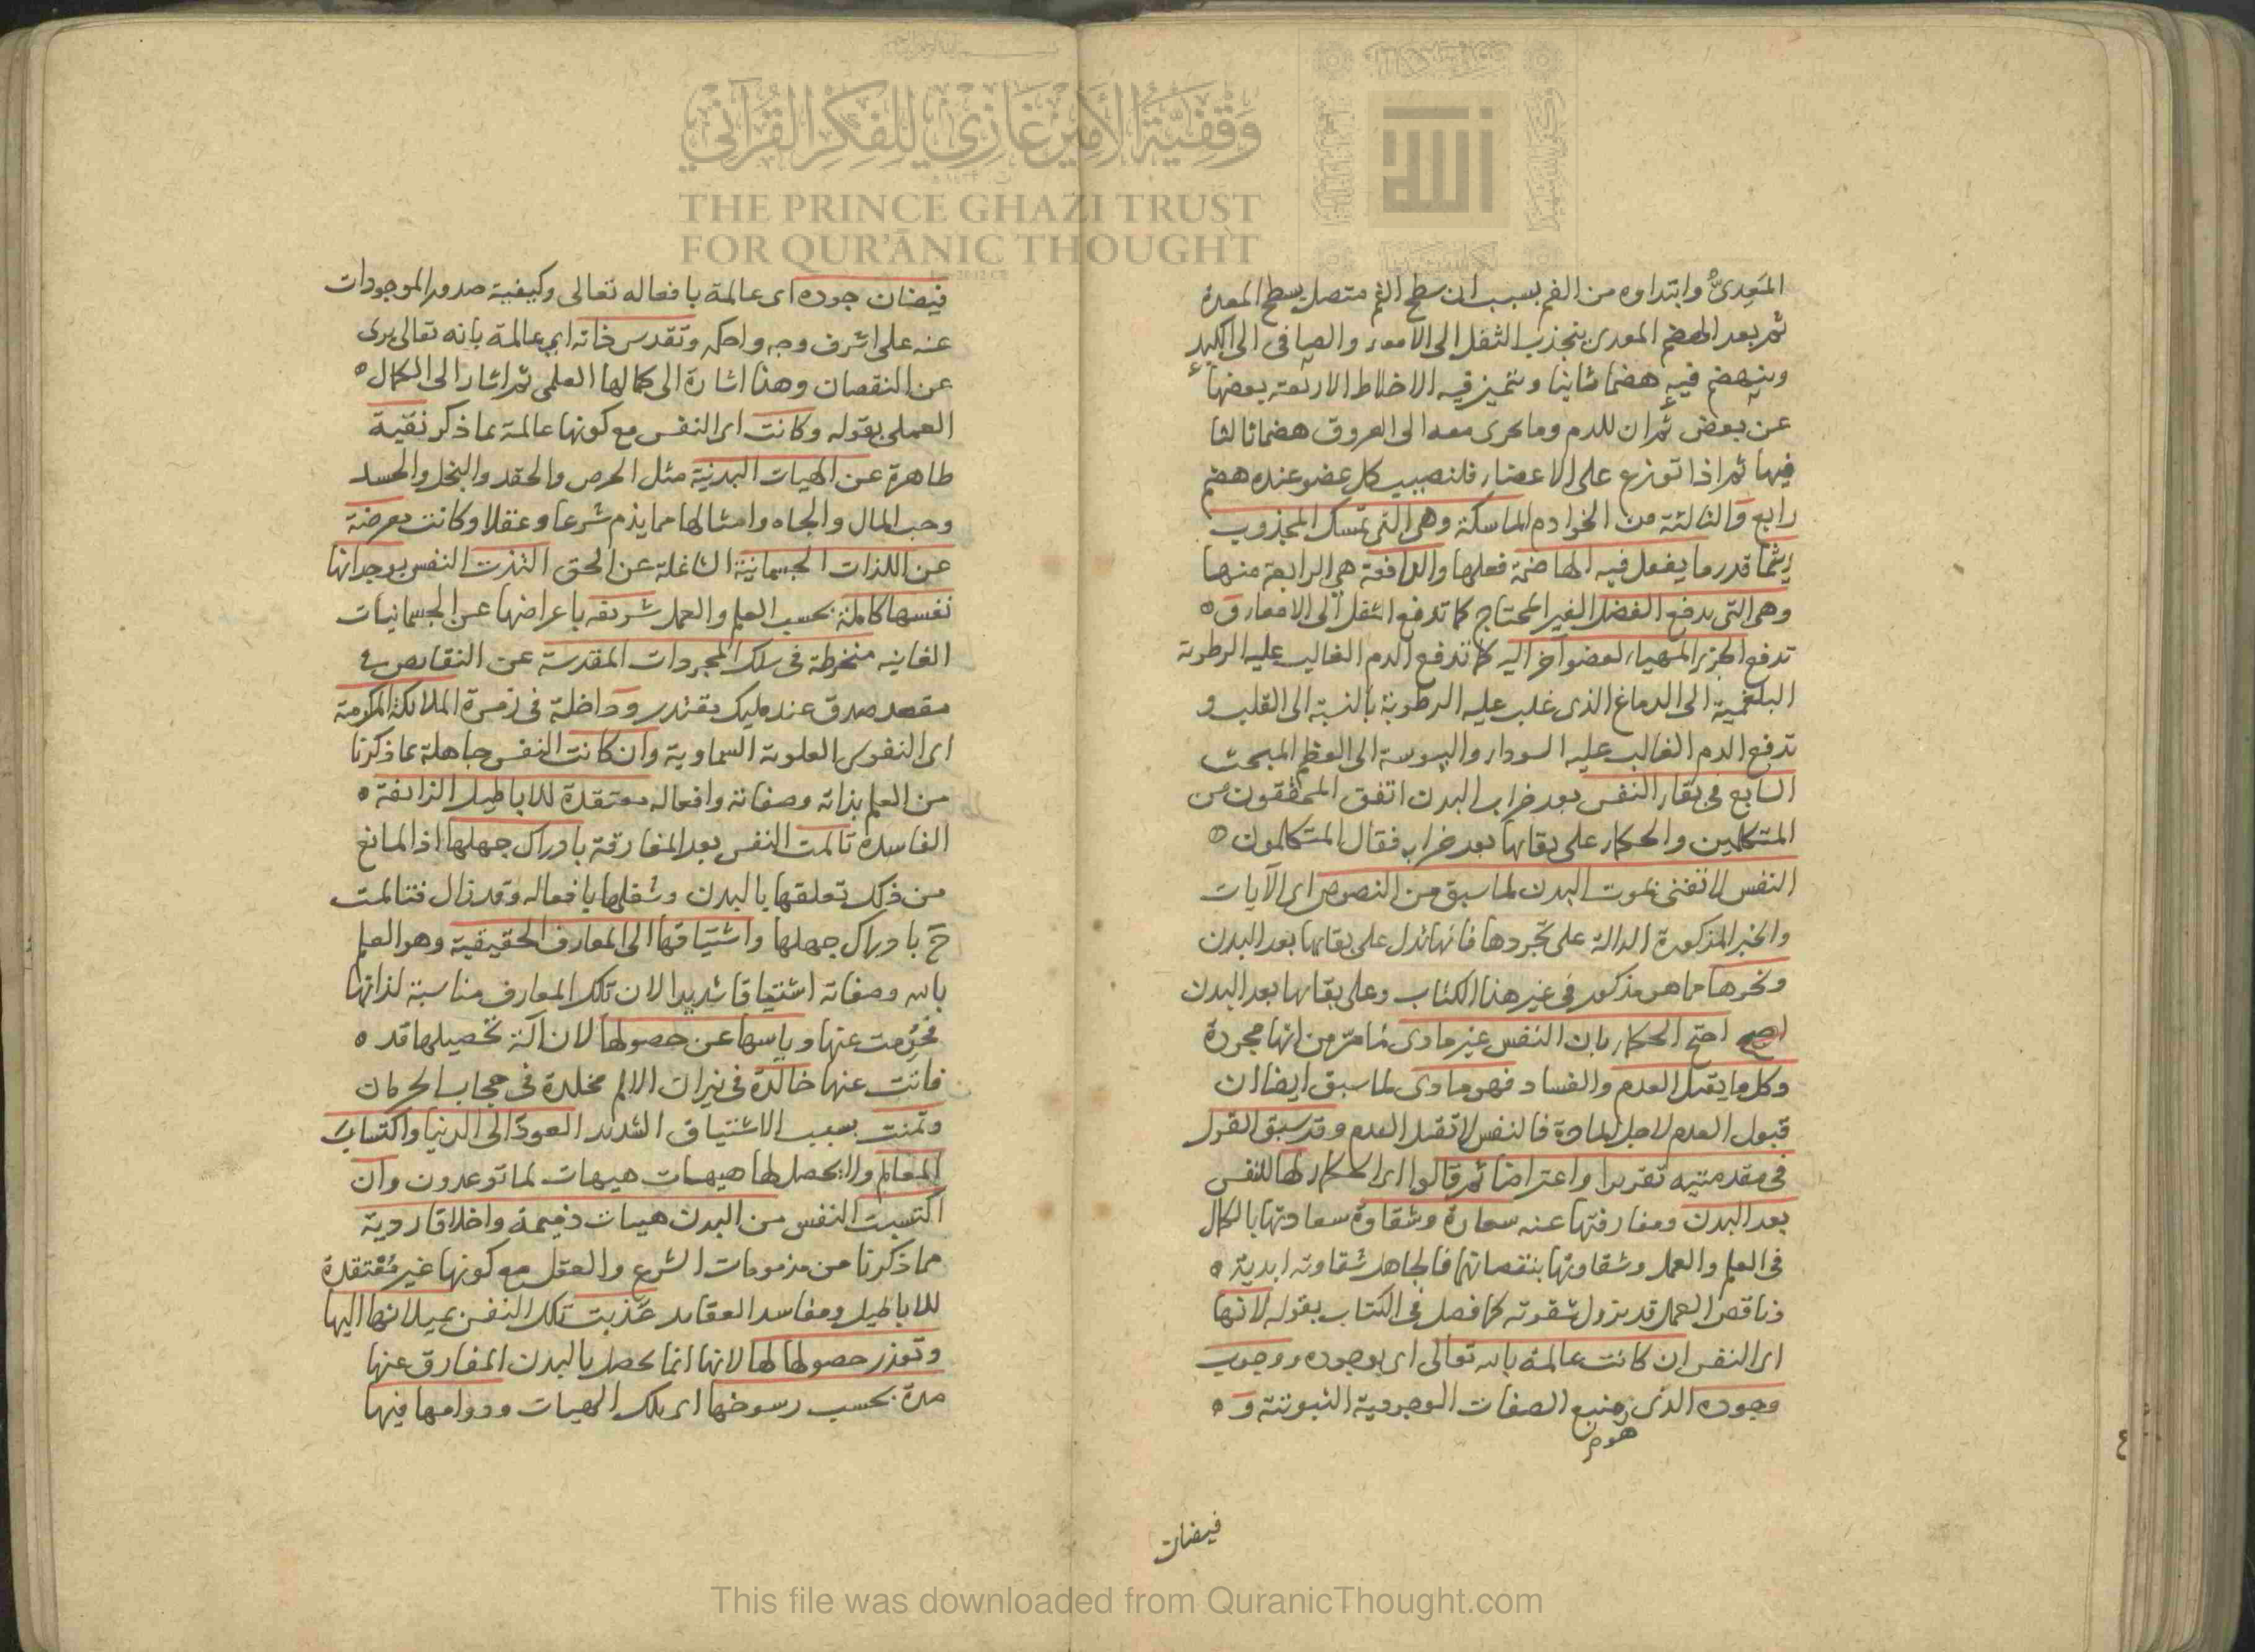 وَقْفِيَّةُ الأَمِيرِ غَازِي لِلْفِكْرِ القُرْآنِي
THE PRINCE GHAZI TRUST
FOR QUR'ĀNIC THOUGHT
المَعِدىُّ وابتداوه من الفم بسبب ان سطح الفم متصل بسطح المعدة
ثم بعد الهضم المعدى ينجذب الثفل الى الامعاء والصافى الى الكبد
وينهضم فيه هضما ثانيا ويتميز فيه الاخلاط الاربعة بعضها
عن بعض ثم ان للدم وما يجرى معه الى العروق هضما ثالثا
فيها ثم اذا توزع على الاعضاء فلنصيب كل عضو عنده هضم
رابع والثالثة من الخوادم الماسكة وهى التى تمسك المجذوب
ريثما قدر ما يفعل فيه الهاضمة فعلها والدافعة هى الرابعة منها
وهى التى يدفع الفضل الغير المحتاج كما تدفع الثفل الى الامعاء و
تدفع الجزء المهياء لعضو آخر اليه كما تدفع الدم الغالب عليه الرطوبة
البلغمية الى الدماغ الذى غلب عليه الرطوبة بالنسبة الى القلب و
تدفع الدم الغالب عليه السوداء واليبوسة الى العظم المبحث
السابع فى بقاء النفس بعد خراب البدن اتفق المحققون من
المتكلمين والحكماء على بقائها بعد خرابه فقال المتكلمون
النفس لا تفنى بموت البدن لما سبق من النصوص اى الآيات
والخبر المذكورة الدالة على تجردها فانها تدل على بقائها بعد البدن
ونحوها مما هو مذكور فى غير هذا الكتاب وعلى بقائها بعد البدن
احتج الحكماء بان النفس غير مادى لما مرّ من انها مجردة
وكل ما يقبل العدم والفساد فهو مادى لما سبق ايضا ان
قبول العدم لاجل المادة فالنفس لا تقبل العدم وقد سبق القول
فى مقدمتيه تقريرا واعتراضا ثم قالوا اى الحكماء لها للنفس
بعد البدن ومفارقتها عنه سعادة وشقاوة سعادتها بالكمال
فى العلم والعمل وشقاوتها بنقصانهما فالجاهل شقاوته ابدية
وناقص العمل قد يزول شقوته كما فصل فى الكتاب بقوله لانها
اى النفس ان كانت عالمة بالله تعالى اى بوجوده ووجوب
وجوده الذى منبع الصفات الوجودية الثبوتية و
هو
فيضان
فيضان جوده اى عالمة بافعاله تعالى وكيفية صدور الموجودات
عنه على اشرف وجه واحكمه وتقدس ذاته اى عالمة بانه تعالى برى
عن النقصان وهذا اشارة الى كمالها العلمى ثم اشار الى الكمال
العملى بقوله وكانت اى النفس مع كونها عالمة بما ذكر نقية
طاهرة عن الهيات البدنية مثل الحرص والحقد والبخل والحسد
وحب المال والجاه وامثالها مما يذم شرعا وعقلا وكانت معرضة
عن اللذات الجسمانية الشاغلة عن الحق التذت النفس بوجدانها
نفسها كاملة بحسب العلم والعمل شريفه باعراضها عن الجسمانيات
الفانيه منخرطة فى سلك المجردات المقدسة عن النقايص فى
مقعد صدق عند مليك مقتدر وداخلة فى زمرة الملائكة المكرمة
اى النفوس العلوية السماوية وان كانت النفس جاهلة بما ذكرنا
من العلم بذاته وصفاته وافعاله معتقدة للاباطيل الزائفة
الفاسدة تالمت النفس بعد المفارقة بادراك جهلها اذ المانع
من ذلك تعلقها بالبدن وشغلها بافعاله وقد زال فتالمت
ح بادراك جهلها واشتياقها الى المعارف الحقيقية وهو العلم
بالله وصفاته اشتياقا شديدا لان تلك المعارف مناسبة لذاتها
فحُرِمت عنها وياسها عن حصولها لان آلة تحصيلها قد
فاتت عنها خالدة فى نيران الالم مخلدة فى حجاب الحرمان
وتمنت بسبب الاشتياق الشديد العودَ الى الدنيا واكتساب
المعالم ولا يحصل لها هيهات هيهات لما توعدون وان
اكتسبت النفس من البدن هيات ذميمة واخلاقا ردية
مما ذكرنا من مذمومات الشرع والعقل مع كونها غير مُعْتقدة
للاباطيل ومفاسد العقايد عُذبت تلك النفس بميلانها اليها
وتعذر حصولها لها لانها انما يحصل بالبدن المفارق عنها
مدة بحسب رسوخها اى تلك الهيات ودوامها فيها
This file was downloaded from QuranicThought.com